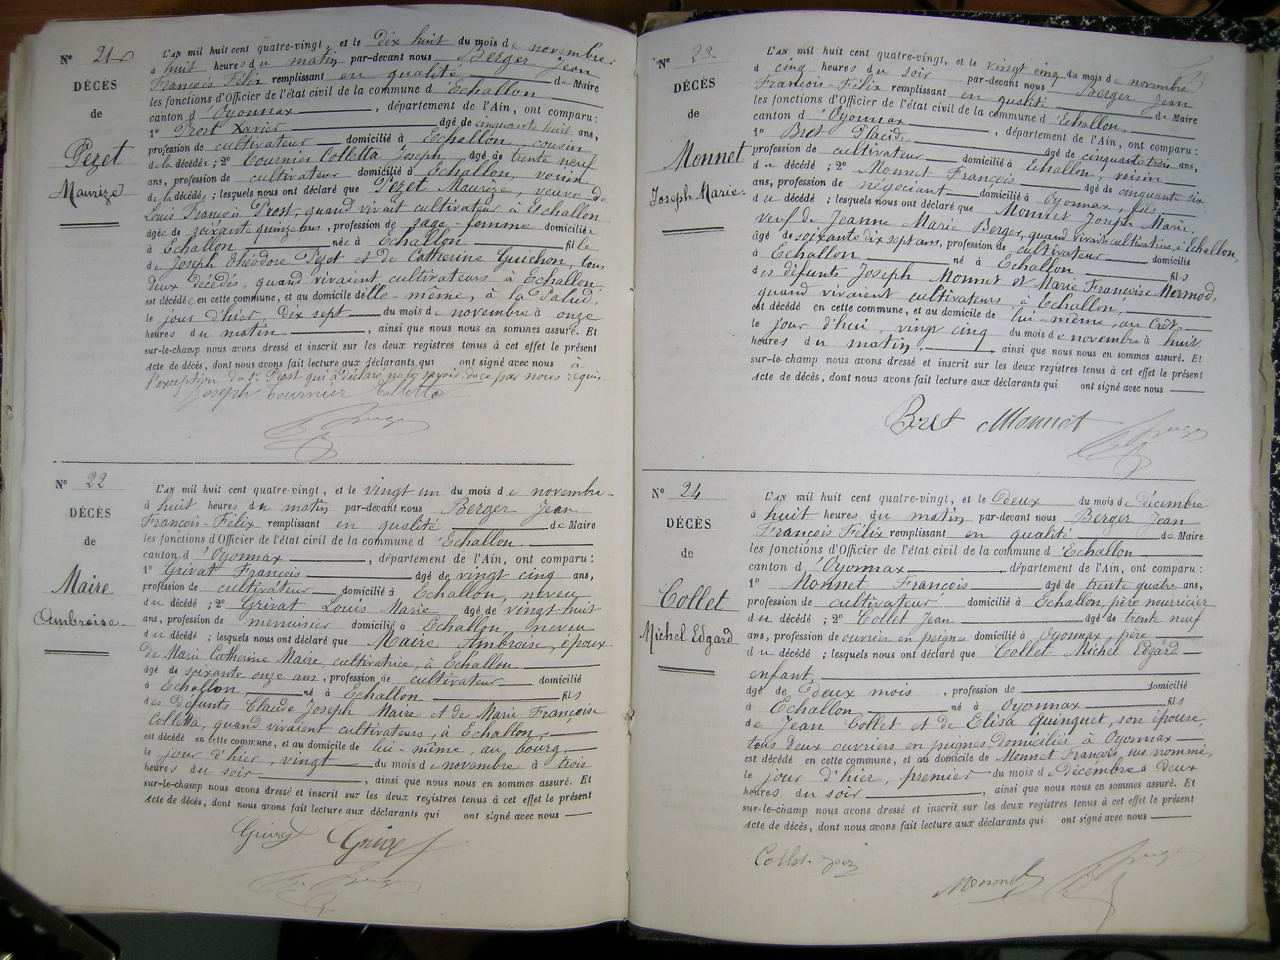 N° 21
DÉCÈS
de
Pezet
Maurize
L'AN mil huit cent quatre-vingt, et le dix huit du mois de novembre
à huit heures du matin par-devant nous Berger Jean
François Félix remplissant en qualité de Maire
les fonctions d'Officier de l'état civil de la commune d'Echallon
canton d'Oyonnax, département de l'Ain, ont comparu:
1° Prost Xavier âgé de cinquante huit ans,
profession de cultivateur domicilié à Echallon, cousin
de la décédée; 2° Tournier Colletta Joseph âgé de trente neuf
ans, profession de cultivateur domicilié à Echallon, voisin
de la décédée; lesquels nous ont déclaré que Pezet Maurize, veuve de
Louis François Prost, quand vivait cultivateur à Echallon
âgée de soixante quinze ans, profession de sage-femme domiciliée
à Echallon née à Echallon fille
de Joseph Théodore Pezet et de Catherine Guichon, tous
deux décédés, quand vivaient cultivateurs à Echallon
est décédée en cette commune, et au domicile d'elle-même, à la Palud,
le jour d'hier, dix sept du mois de novembre à onze
heures du matin, ainsi que nous nous en sommes assuré. Et
sur-le-champ nous avons dressé et inscrit sur les deux registres tenus à cet effet le présent
acte de décès, dont nous avons fait lecture aux déclarants qui ont signé avec nous à
l'exception de Sr Prost qui a déclaré ne le savoir de ce par nous requis
Joseph Tournier Colletta
N° 22
DÉCÈS
de
Maire
Ambroise
L'AN mil huit cent quatre-vingt, et le vingt un du mois de novembre
à huit heures du matin par-devant nous Berger Jean
François-Félix remplissant en qualité de Maire
les fonctions d'Officier de l'état civil de la commune d'Echallon
canton d'Oyonnax, département de l'Ain, ont comparu:
1° Grivat François âgé de vingt cinq ans,
profession de cultivateur domicilié à Echallon, neveu
du décédé; 2° Grivat Louis Marie âgé de vingt huit
ans, profession de menuisier domicilié à Echallon, neveu
du décédé; lesquels nous ont déclaré que Maire Ambroise, époux
de Marie Catherine Maire, cultivatrice, à Echallon
âgé de soixante onze ans, profession de cultivateur domicilié
à Echallon né à Echallon fils
des défunts Claude Joseph Maire et de Marie Françoise
Colletta, quand vivaient cultivateurs, à Echallon,
est décédé en cette commune, et au domicile de lui-même, au bourg,
le jour d'hier, vingt du mois de novembre à trois
heures du soir, ainsi que nous nous en sommes assuré. Et
sur-le-champ nous avons dressé et inscrit sur les deux registres tenus à cet effet le présent
acte de décès, dont nous avons fait lecture aux déclarants qui ont signé avec nous
N° 23
DÉCÈS
de
Monnet
Joseph Marie
L'AN mil huit cent quatre-vingt, et le vingt cinq du mois de novembre
à cinq heures du soir par-devant nous Berger Jean
François-Félix remplissant en qualité de Maire
les fonctions d'Officier de l'état civil de la commune d'Echallon
canton d'Oyonnax, département de l'Ain, ont comparu:
1° Bret Placide âgé de cinquante trois ans,
profession de cultivateur domicilié à Echallon, voisin
du décédé; 2° Monnet François âgé de cinquante six
ans, profession de négociant domicilié à Oyonnax, fils
du décédé; lesquels nous ont déclaré que Monnet Joseph Marie,
veuf de Jeanne Marie Berger, quand vivait cultivatrice, à Echallon,
âgé de soixante dix sept ans, profession de cultivateur domicilié
à Echallon né à Echallon fils
des défunts Joseph Monnet et Marie Françoise Mermod,
quand vivaient cultivateurs à Echallon,
est décédé en cette commune, et au domicile de lui-même, au Crêt,
le jour d'hui, vingt cinq du mois de novembre à huit
heures du matin, ainsi que nous nous en sommes assuré. Et
sur-le-champ nous avons dressé et inscrit sur les deux registres tenus à cet effet le présent
acte de décès, dont nous avons fait lecture aux déclarants qui ont signé avec nous
Bret Monnet
N° 24
DÉCÈS
de
Collet
Michel Edgard
L'AN mil huit cent quatre-vingt, et le deux du mois de décembre
à huit heures du matin, par-devant nous Berger Jean
François Félix remplissant en qualité de Maire
les fonctions d'Officier de l'état civil de la commune d'Echallon
canton d'Oyonnax département de l'Ain, ont comparu:
1° Monnet François âgé de trente quatre ans,
profession de cultivateur domicilié à Echallon, père nourricier
du décédé; 2° Collet Jean âgé de trente neuf
ans, profession de ouvrier en peignes domicilié à Oyonnax, père
du décédé; lesquels nous ont déclaré que Collet Michel Edgard
enfant,
âgé de deux mois, profession de domicilié
à Echallon né à Oyonnax fils
de Jean Collet et de Elisa Quinquet, son épouse,
tous deux ouvriers en peignes, domiciliés à Oyonnax
est décédé en cette commune, et au domicile de Monnet François, sus nommé,
le jour d'hier, premier du mois de Décembre à deux
heures du soir, ainsi que nous nous en sommes assuré. Et
sur-le-champ nous avons dressé et inscrit sur les deux registres tenus à cet effet le présent
acte de décès, dont nous avons fait lecture aux déclarants qui ont signé avec nous
Collet Jean
Monnet